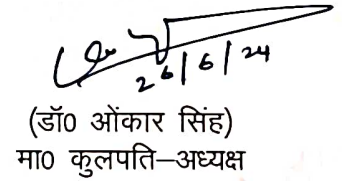 26/6/24
(डॉ0 ओंकार सिंह)
मा0 कुलपति–अध्यक्ष